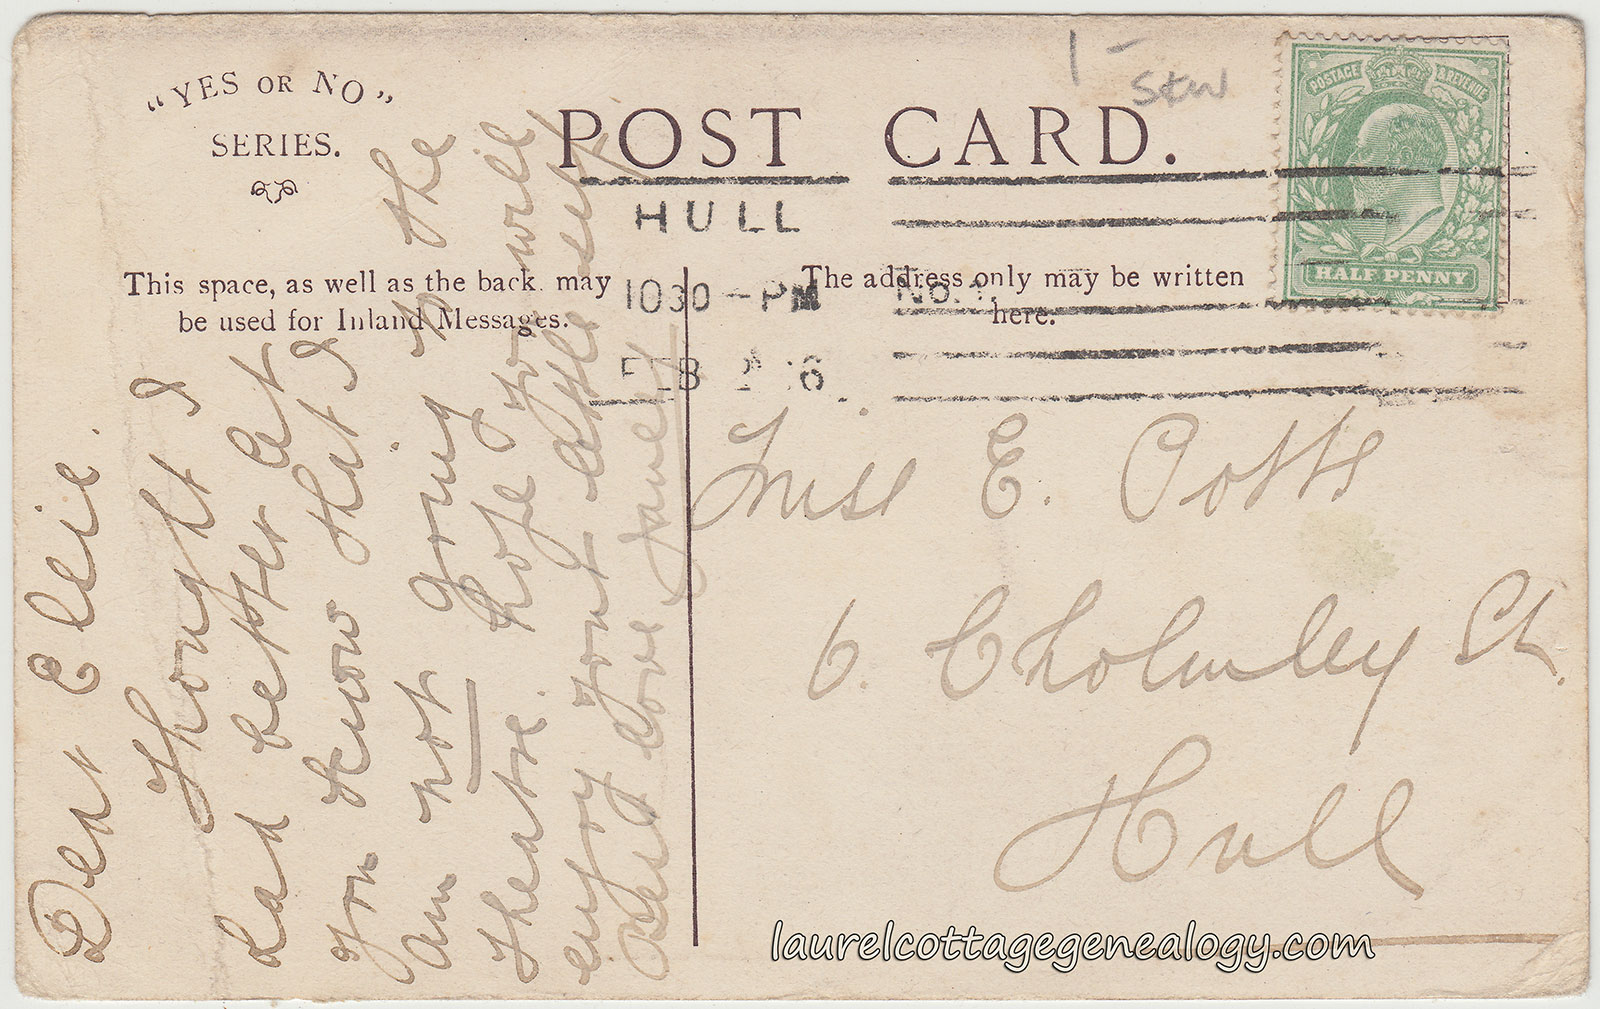 "YES OR NO"
SERIES.
POST CARD.
1-
HULL
1030-PM
FEB 2 6
This space, as well as the back may
be used for Inland Messages.
The address only may be written
here.
HALF PENNY
POSTAGE & REVENUE
Dear Elsie.
Thought I
had better let
you know that I
am not going to the
Theatre. hope you will
enjoy your little self,
Best love Janet
Miss E. Potts
6. Cholmley St.
Hull
laurelcottagegenealogy.com